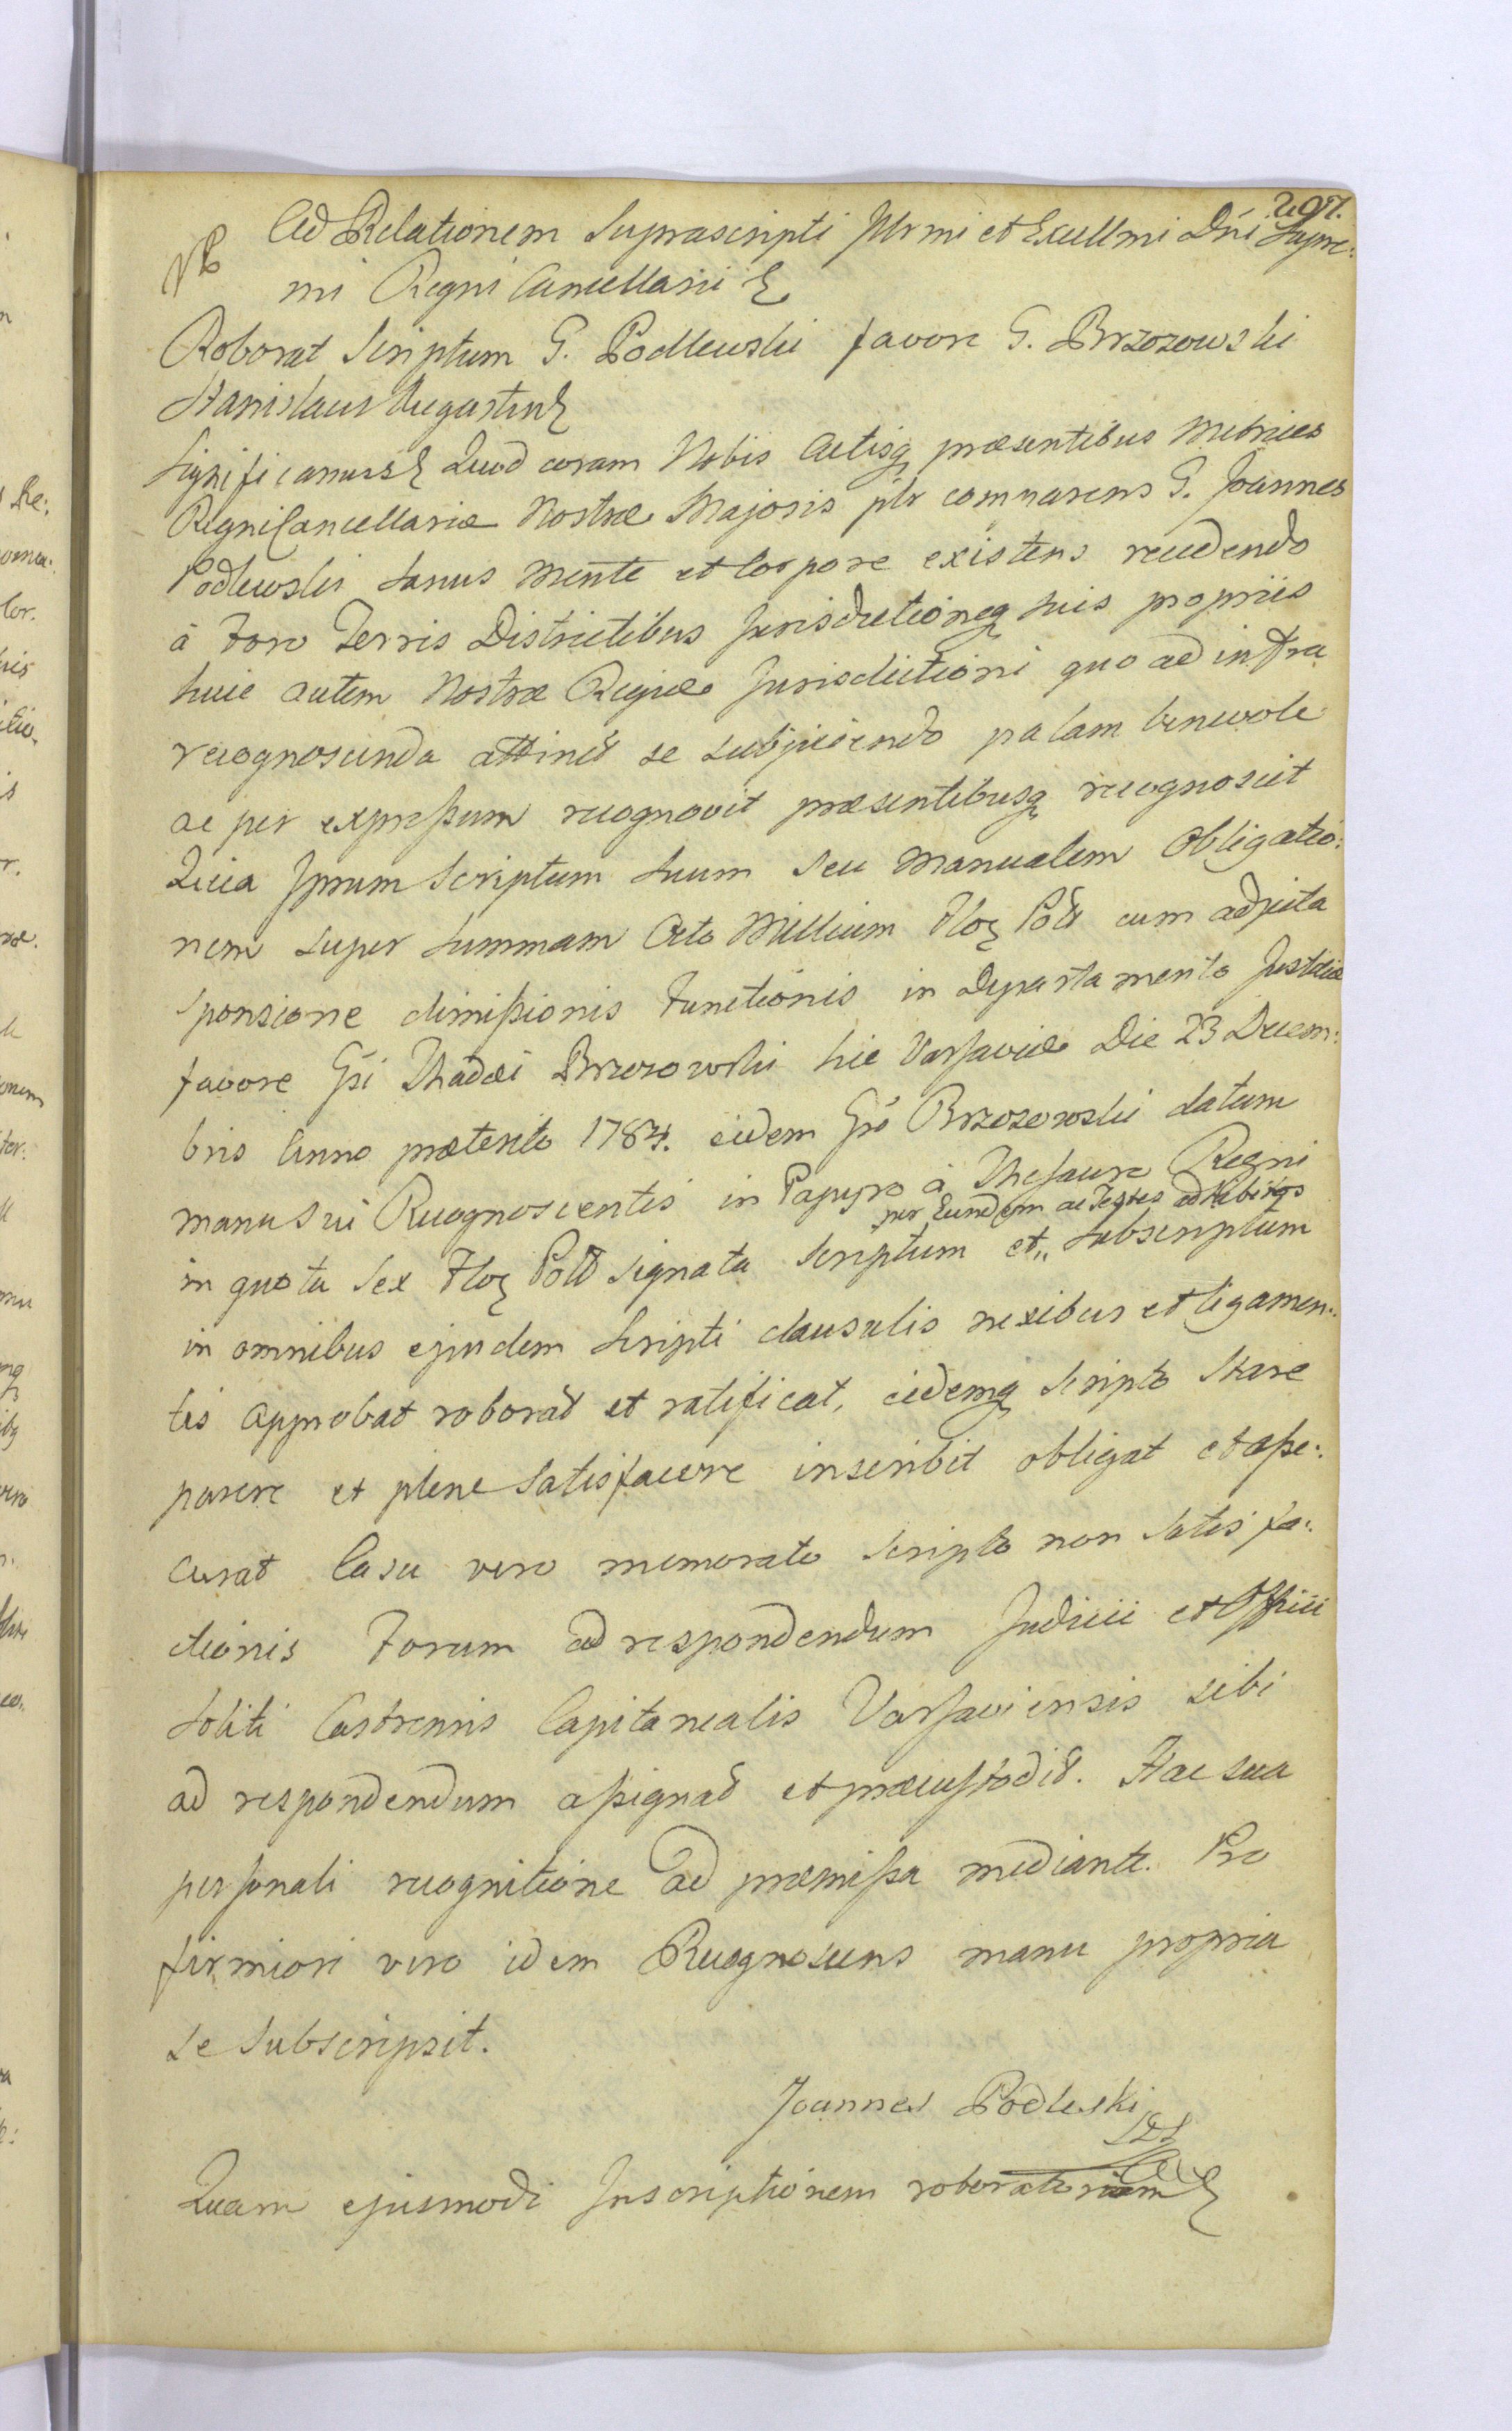 207.
NB Ad Relationem Suprascripti Jllrmi et Excellmi Dni Supre:
mi Regni Cancellarii
Roborat Scriptum G. Podlewski favore G. Brzozowski
Stanislaus Augustus
Significamus Quod coram Nobis Actisq præsentibus Metrices
Regni Cancellariæ Nostræ Majoris plr comparens G. Joannes
Podlewski Sanus Mente et Corpore existens recedendo
à Foro Terris Districtibus Jurisdictioneq suis propriis
huic autem Nostræ Regiæ Jurisdictioni quo ad infra
recognoscenda attinet se subjiciendo palam benevole
ac per expressum recognovit præsentibusq recognoscit
Quia Jpsum Scriptum Suum Seu Manualem Obligatio:
nem super Summam Octo Millium Flor Poll cum adjecta
Sponsione dimissionis Functionis in Departamento Justitiæ
favore Gsi Thadæi Brzozowski hic Varsaviæ Die 23 Decem:
bris Anno præterito 1784. eidem Gso Brzozowski datum
manu Sui Recognoscentis in Papyro à Thesauro Regni
per Eundem ac Testes adhibitos
in quota Sex Flor Poll signata Scriptum et,, Subscriptum
in omnibus ejusdem Scripti clausulis nexibus et ligamen:
tis approbat roborat et ratificat, eidemq Scripto Stare
parere et plene Satisfacere inscribit obligat et asse:
curat Casu vero memorato Scripto non Satisfa:
ctionis Forum ad respondendum Judicii et Officii
Soliti Castrensis Capitanealis Varsaviensis sibi
ad respondendum assignat et præcustodit. Hac sua
personali recognitione ad præmissa mediante. Pro
firmiori vero idem Recognoscens manu propria
se Subscripsit.
Joannes Podleski
Quam ejusmodi Jnscriptionem roboratoriam